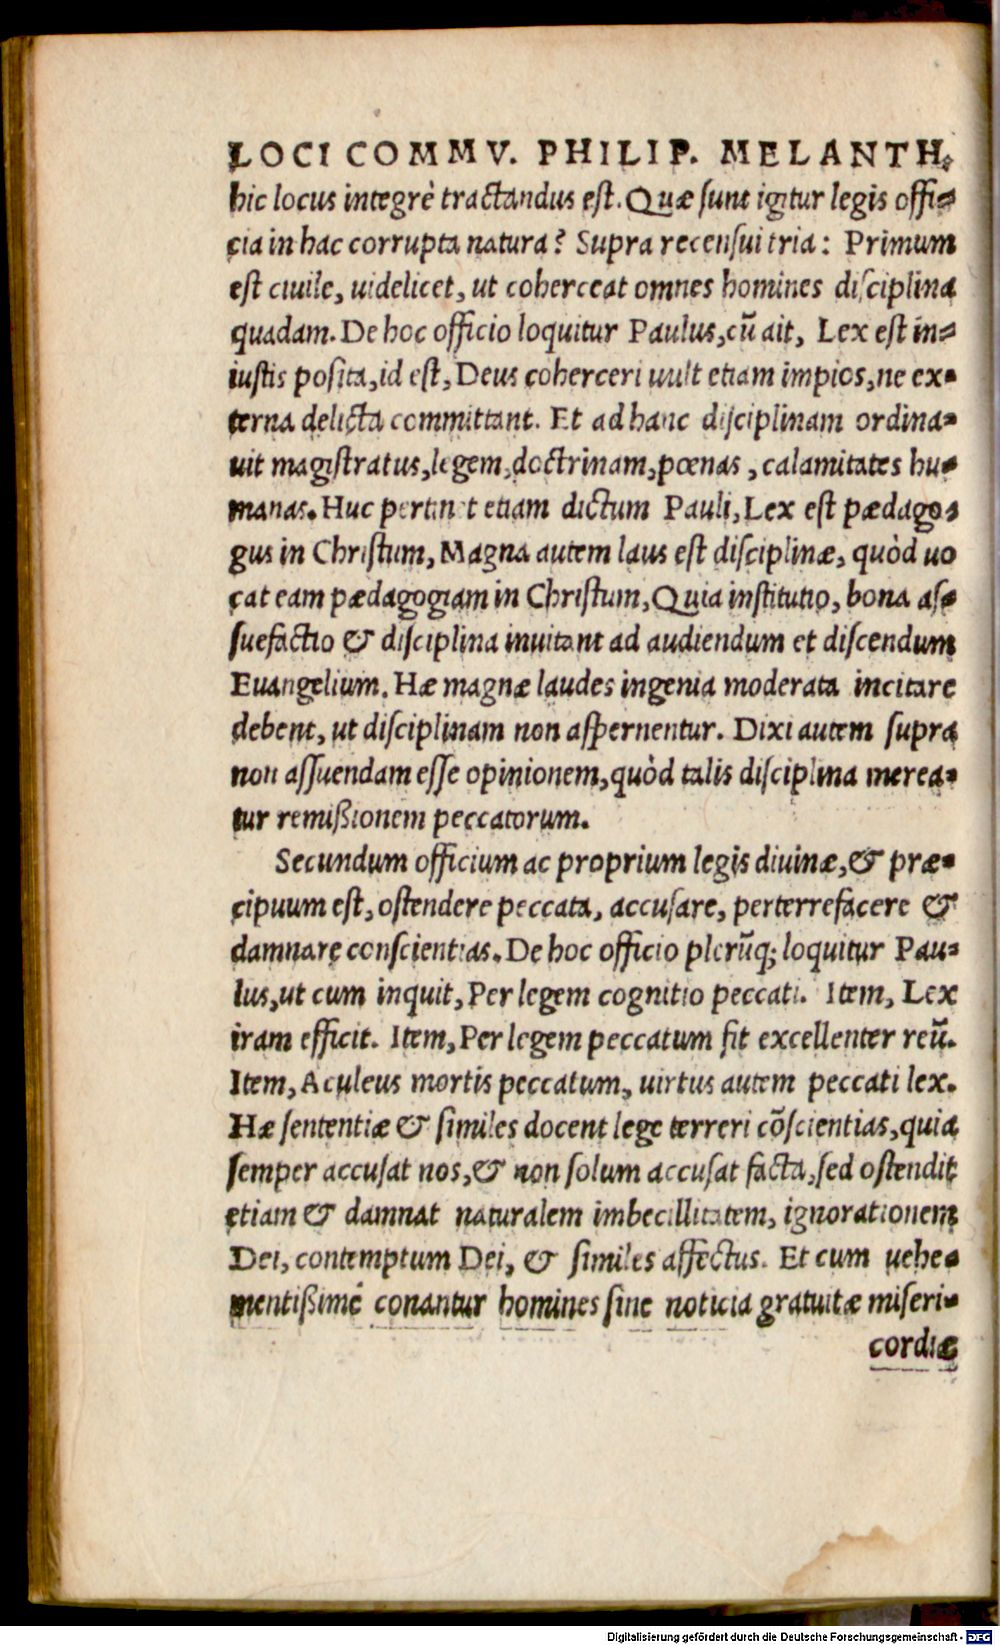 LOCI COMMV. PHILIP. MELANTH.
hic locus integrè tractandus est. Quæ sunt igitur legis offi=
cia in hac corrupta natura? Supra recensui tria: Primum
est ciuile, uidelicet, ut coherceat omnes homines disciplina
quadam. De hoc officio loquitur Paulus, cũ ait, Lex est in=
iustis posita, id est, Deus coherceri uult etiam impios, ne ex=
terna delicta committant. Et ad hanc disciplinam ordina=
uit magistratus, legem, doctrinam, pœnas, calamitates hu=
manas. Huc pertinet etiam dictum Pauli, Lex est pædago=
gus in Christum, Magna autem laus est disciplinæ, quòd uo
cat eam pædagogiam in Christum, Quia institutio, bona as=
suefactio & disciplina inuitant ad audiendum et discendum
Euangelium. Hæ magnæ laudes ingenia moderata incitare
debent, ut disciplinam non aspernentur. Dixi autem supra
non assuendam esse opinionem, quòd talis disciplina merea=
tur remißionem peccatorum.
Secundum officium ac proprium legis diuinæ, & præ=
cipuum est, ostendere peccata, accusare, perterrefacere &
damnare conscientias. De hoc officio plerũq; loquitur Pau=
lus, ut cum inquit, Per legem cognitio peccati. Item, Lex
iram efficit. Item, Per legem peccatum fit excellenter reũ.
Item, Aculeus mortis peccatum, uirtus autem peccati lex.
Hæ sententiæ & similes docent lege terreri cõscientias, quia
semper accusat nos, & non solum accusat facta, sed ostendit
etiam & damnat naturalem imbecillitatem, ignorationem
Dei, contemptum Dei, & similes affectus. Et cum uehe=
mentißimè conantur homines sine noticia gratuitæ miseri=
cordiæ
Digitalisierung gefördert durch die Deutsche Forschungsgemeinschaft - DFG